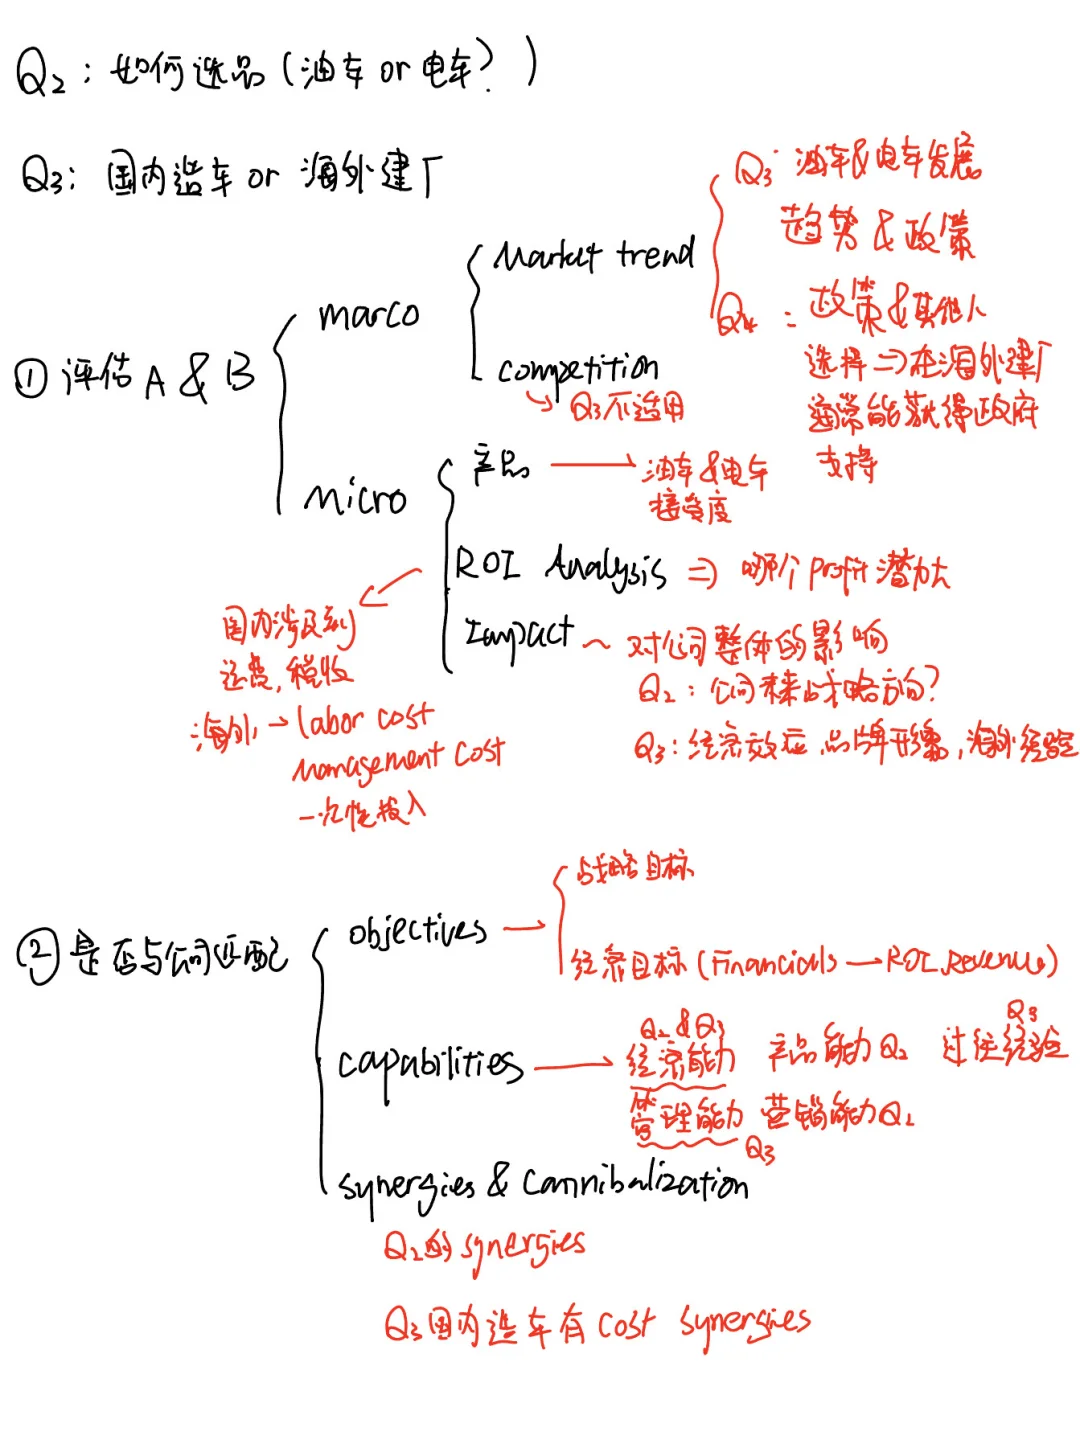 Q2：如何选品（油车 or 电车？）
Q3：国内造车 or 海外建厂
① 评估 A & B
marco
Market trend
Q3：油车&电车发展
趋势 & 政策
Q4：政策&其他人
选择 => 在海外建厂
通常能获得政府
支持
competition
Q3不适用
micro
产品
油车&电车
接受度
ROI Analysis => 哪个 profit 潜力大
国内涉及到
运费，税收
海外 → labor cost
management cost
一次性投入
Impact ~ 对公司整体的影响
Q2：公司未来战略方向？
Q3：经济效应，品牌形象，海外经验
② 是否与公司匹配
objectives
战略目标
经济目标（Financials → ROI, Revenue）
capabilities
Q2 & Q3
经济能力 产品能力Q2 过往经验
Q3
管理能力 营销能力Q2
Q3
synergies & Cannibalization
Q2的 synergies
Q3国内造车有 cost synergies